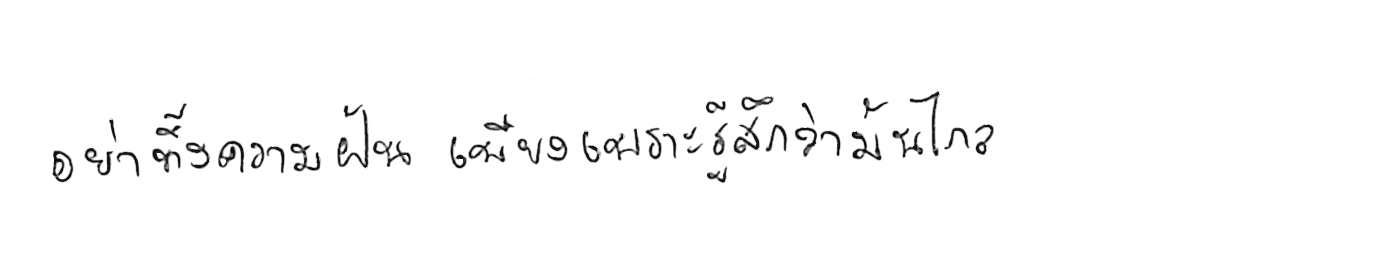 อย่าทิ้งความฝัน เพียงเพราะรู้สึกว่ามันไกล